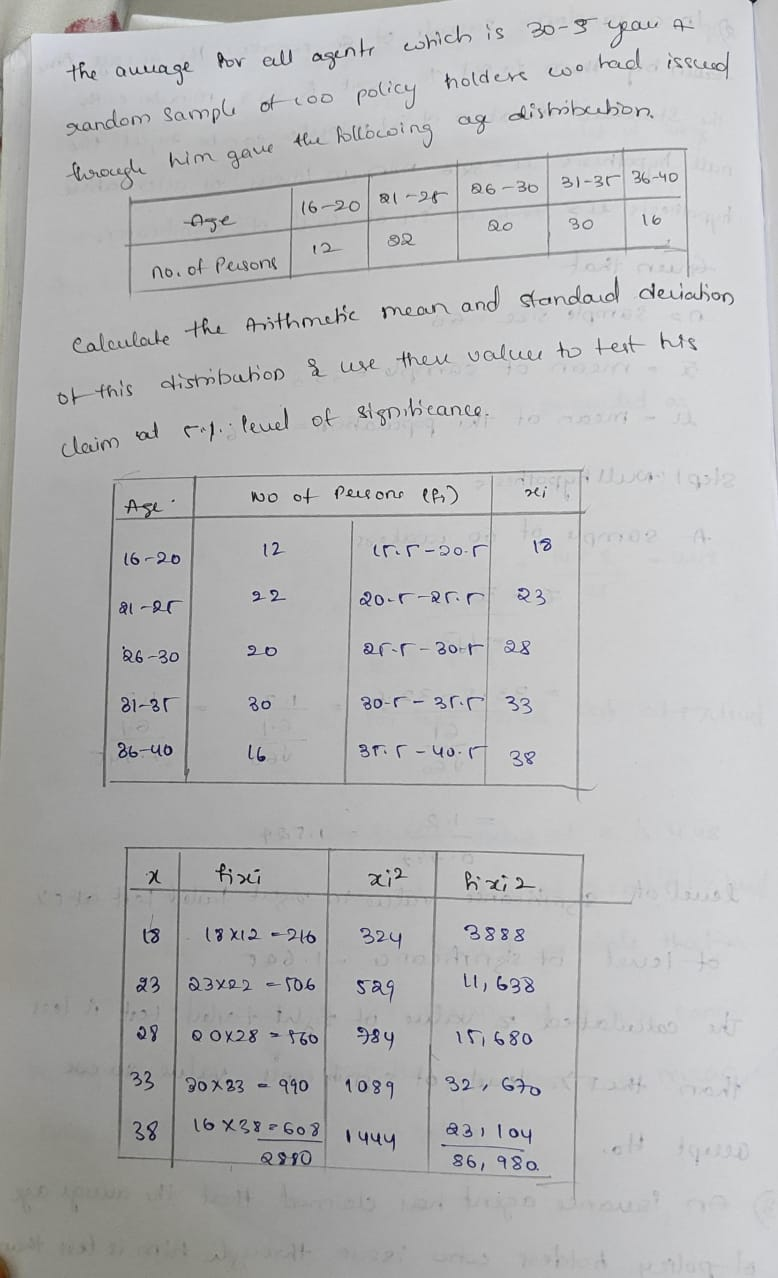 the average for all agents which is 30-5 year A
random sample of 100 policy holders who had issued
through him gave the following age distribution.
Age 16-20 21-25 26-30 31-35 36-40
no. of Persons 12 22 20 30 16
Calculate the Arithmetic mean and standard deviation
of this distribution & use their values to test his
claim at 5%. level of significance.
Age. NO of Persons (fi) xi
16-20 12 15.5-20.5 18
21-25 22 20.5-25.5 23
26-30 20 25.5-30.5 28
31-35 30 30.5-35.5 33
36-40 16 35.5-40.5 38
x fixi xi2 fixi2
18 18x12=216 324 3888
23 23x22=506 529 11,638
28 20x28=560 784 15,680
33 30x33=990 1089 32,670
38 16x38=608 1444 23,104
2880 86,980.